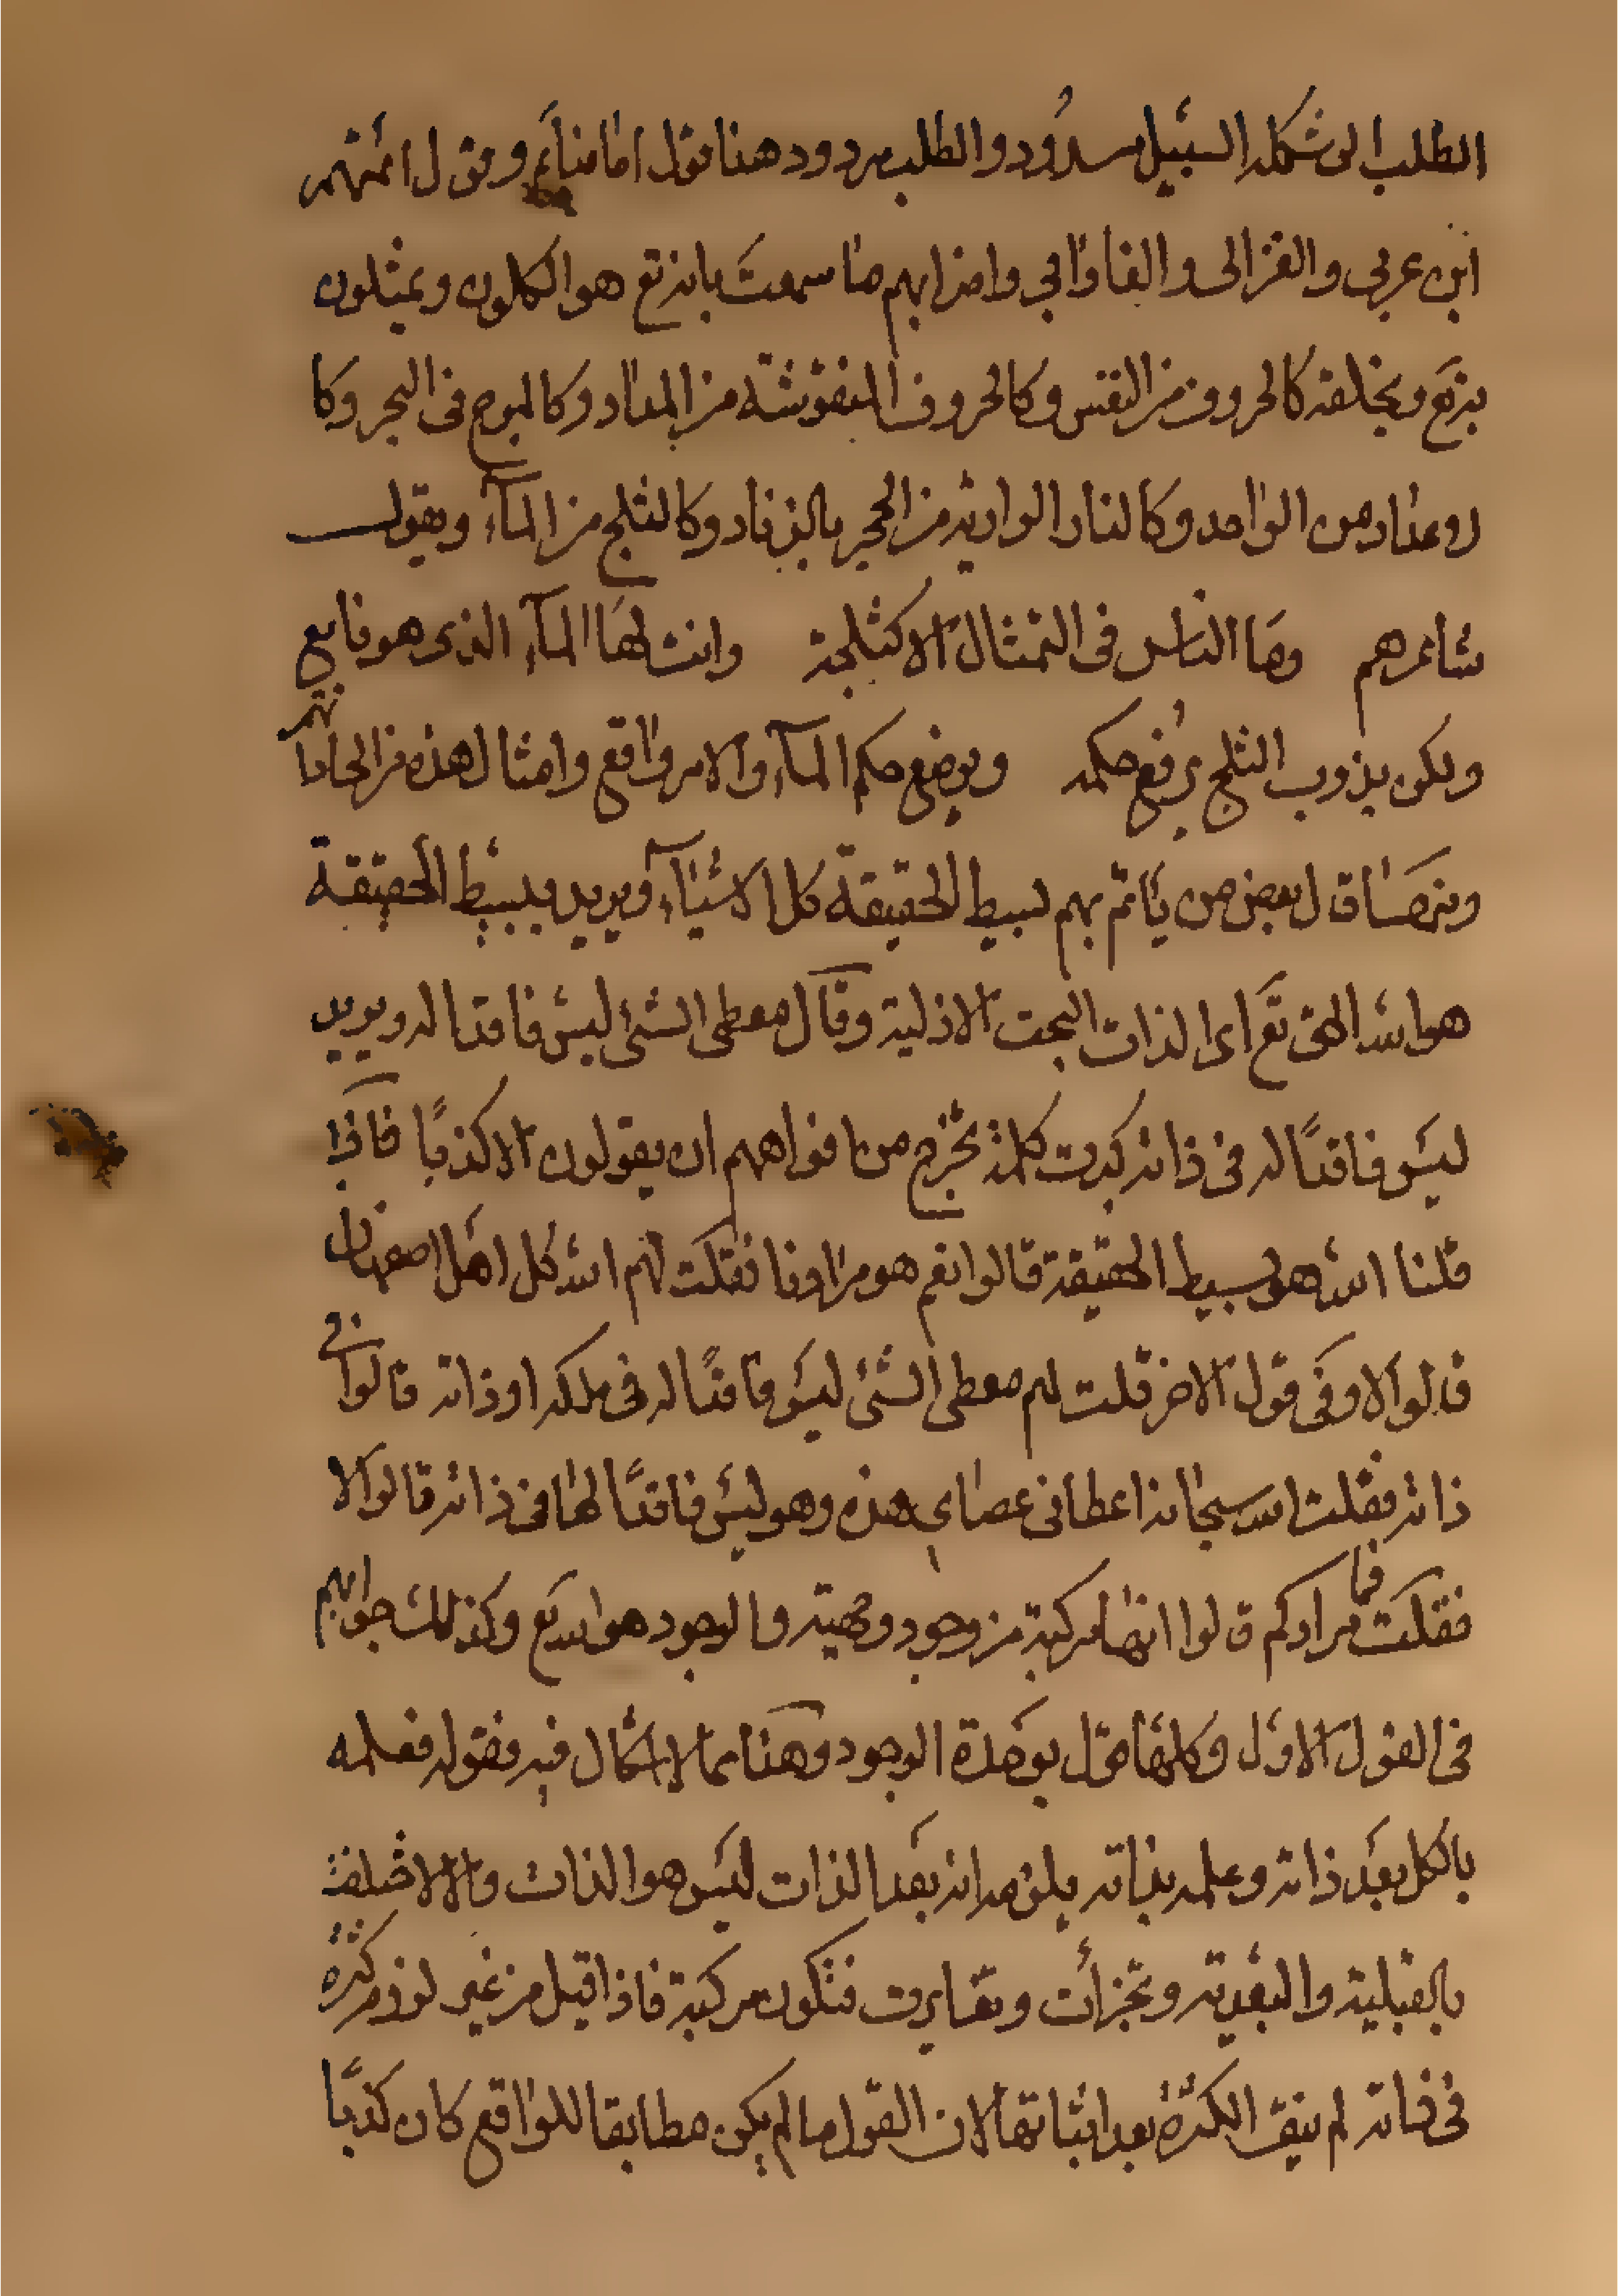 الطلب الى شكله السبيل مسدود والطلب مردود هذا قول امامنا ع وقول ائمتهم
ابن عربى والغزالى والفارابي واضرابهم ما سمعت بانه تع هو الكل ون ويمثلون
به تع وبخلقه كالحروف من النفس وكالحروف المنقوشة من المداد وكالموج فى البحر وكا
لاعداد من الواحد وكالنار الوارية من الحجر بالزناد وكالثلج من المآء ويقول
شاعرهم وما الناس فى التمثال الا كثلجة وانت لها المآء الذى هو نابع
ولكن يذوب الثلج يرفع حكمه ويوضع حكم المآء والامر واقع وامثال هذه من
ومنه ما قال بعض من ياتم بهم بسيط الحقيقة كل الاشيآء ويريد ببسيط الحقيقة
هو الله الحق تع اى الذات البحت الازلية وقال معطى الشئ ليس فاقدا له ويريد
ليس فاقدًا له فى ذاته كبرت كلمة تخرج من افواههم ان يقولون الا كذبًا فاذا
قلنا الله هو بسيط الحقيقة قالوا نعم هو مرادنا فقلت لهم الله كل اهل اصفهان
قالوا لا وفى قول الاخر قلت لهم معطى الشئ ليس فاقدًا له فى ملكه او ذاته قالوا فى
ذاته فقلت الله سبحانه اعطانى عصاي هذه وهو ليس فاقدًا لها فى ذاته قالوا لا
فقلت فما مرادكم قالوا انها مركبة من وجود ومهية والوجود هو الله تع وكذلك جوابهم
فى القول الاول وكلها قول بوحدة الوجود وهذا مما لا اشكال فيه فقوله فعلمه
بالكل بعد ذاته وعلمه بذاته يلزمه انه بعد الذات ليس هو الذات والا لاختلفت
بالقبلية والبعدية وتجزأت وتغايرت فتكون مركبة فاذا قيل من غير لزوم كثرة
فى ذاته لم ينف الكثرة بعد اثباتها لان القول ما لم يكن مطابقا للواقع كان كذبًا